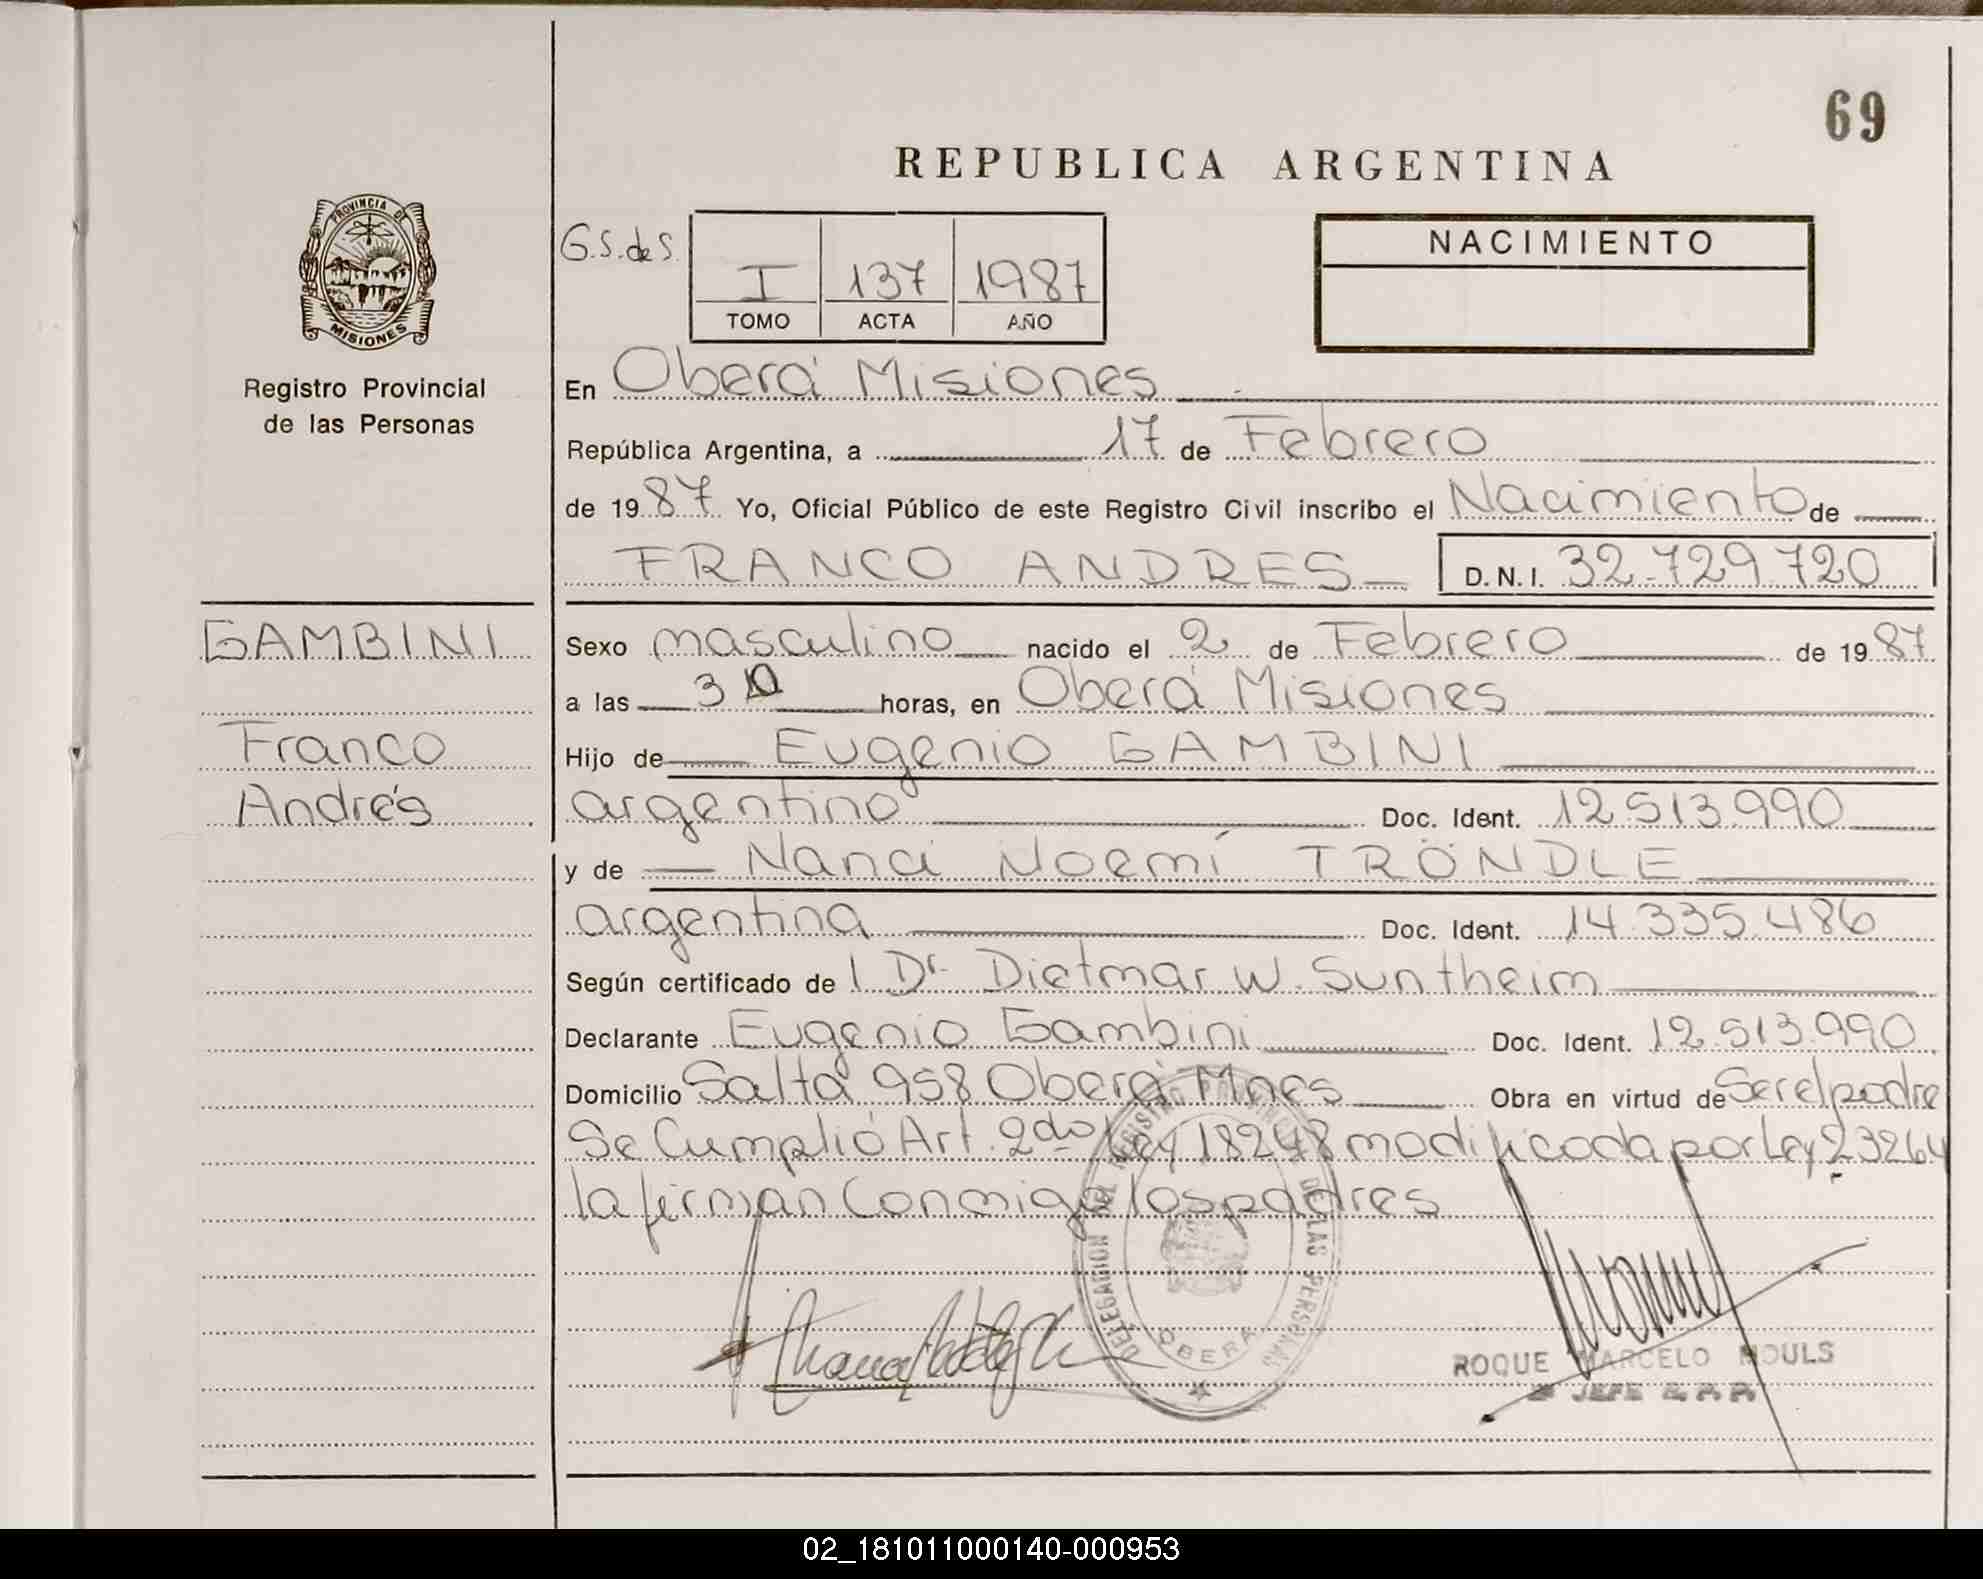 69
REPUBLICA ARGENTINA
PROVINCIA DE
MISIONES
Registro Provincial
de las Personas
G.S.deS.
I 137 1987
TOMO ACTA AÑO
NACIMIENTO
En Oberá Misiones
República Argentina, a 17 de Febrero
de 1987 Yo, Oficial Público de este Registro Civil inscribo el Nacimiento de
FRANCO ANDRES D.N.I. 32.729.720
GAMBINI
Franco
Andrés
Sexo masculino nacido el 2 de Febrero de 1987
a las 3 horas, en Oberá Misiones
Hijo de Eugenio GAMBINI
argentino Doc. Ident. 12.513.990
y de Nanci Noemí TRÖNDLE
argentina Doc. Ident. 14.335.486
Según certificado de l Dr. Dietmar W. Suntheim
Declarante Eugenio Gambini Doc. Ident. 12.513.990
Domicilio Salta 958 Oberá Mnes Obra en virtud de Ser el padre
Se Cumplió Art. 2do Ley 18248 modificada por Ley 23264
la firman Conmigo los padres
DELEGACION DEL REGISTRO PROVINCIAL DE LAS PERSONAS
OBERA
ROQUE MARCELO MOULS
JEFE R.P.P.
02_181011000140-000953